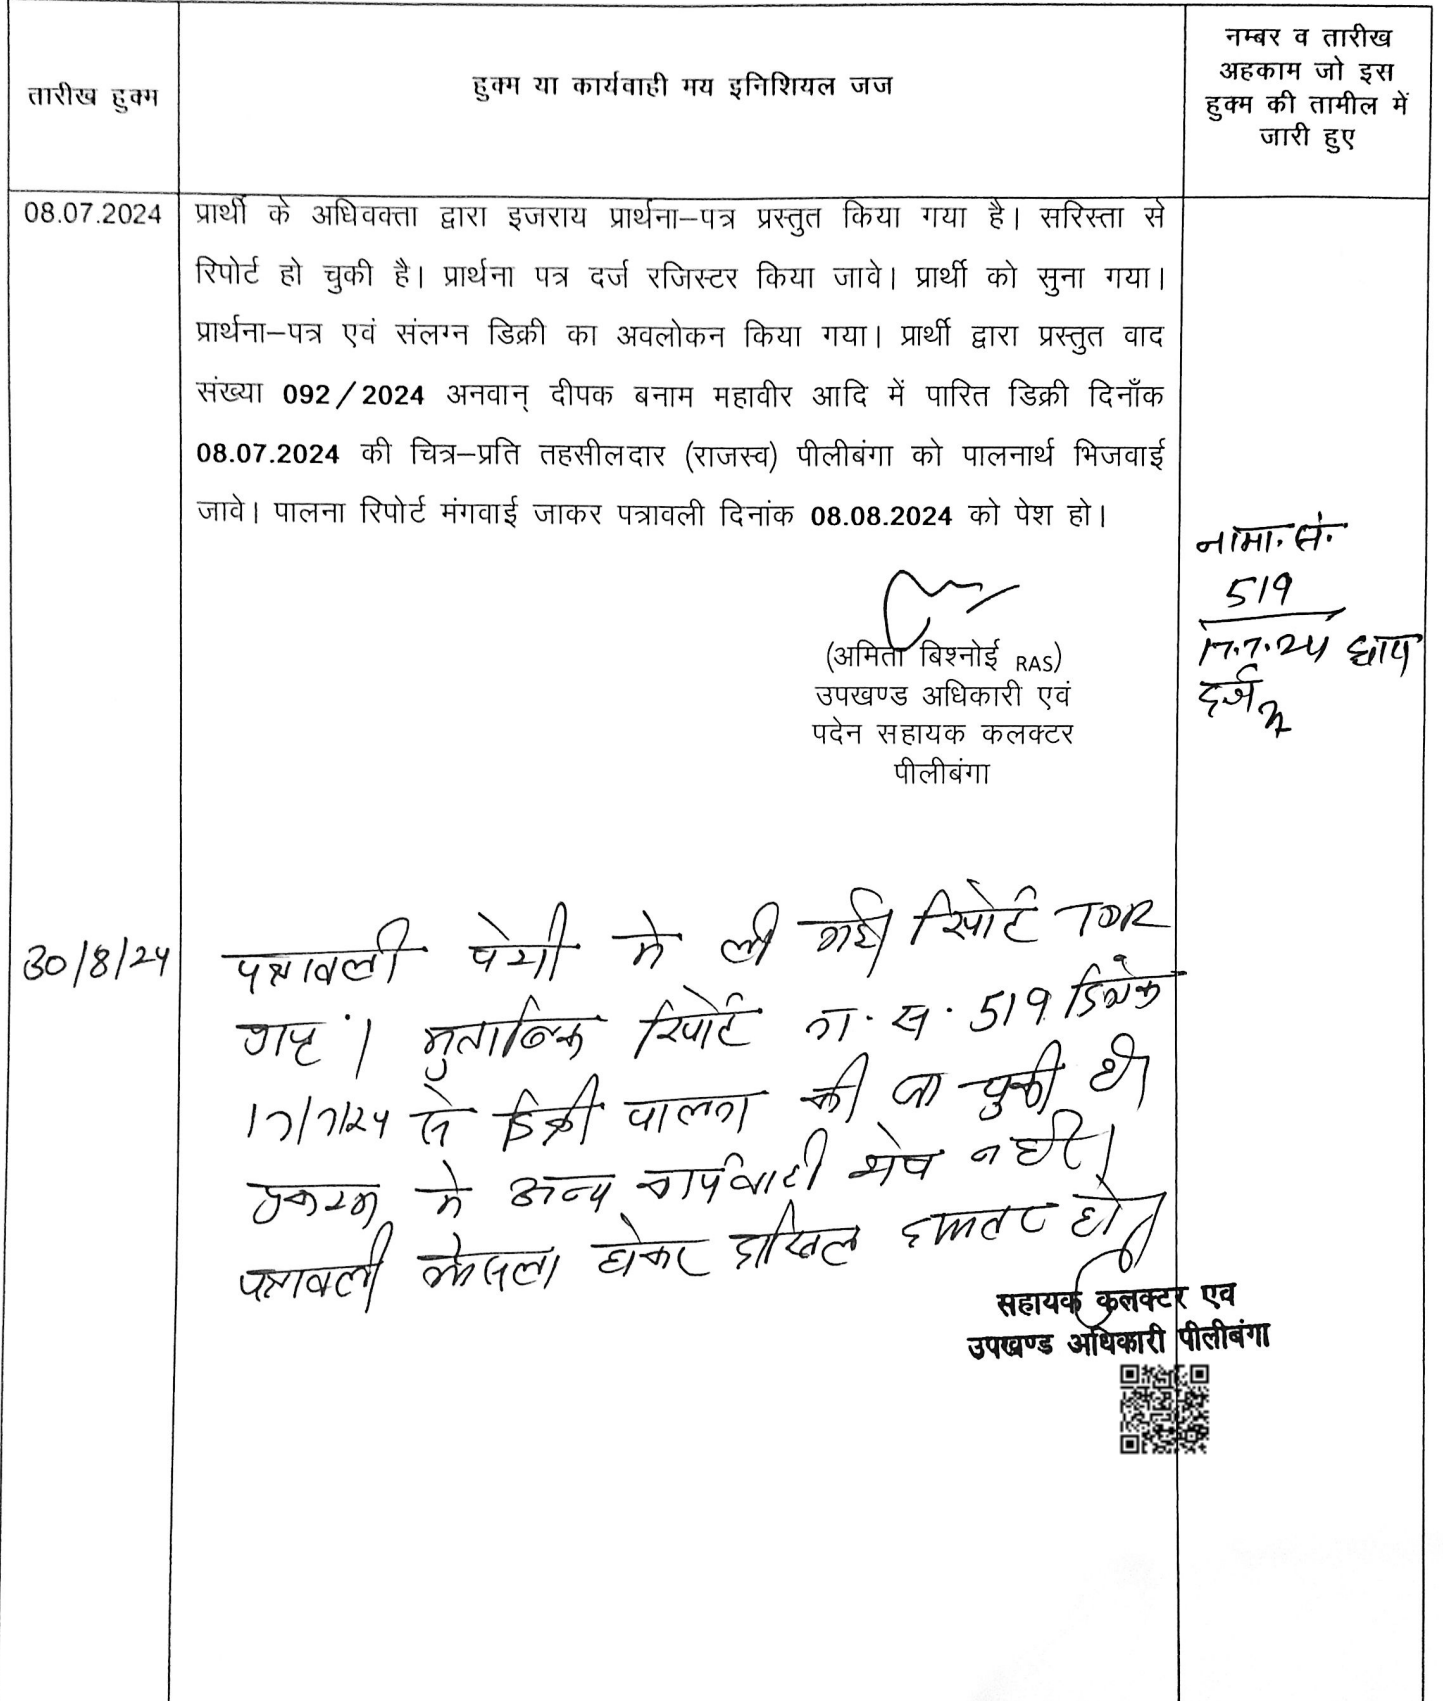 तारीख हुक्म
हुक्म या कार्यवाही मय इनिशियल जज
नम्बर व तारीख
अहकाम जो इस
हुक्म की तामील में
जारी हुए
08.07.2024
प्रार्थी के अधिवक्ता द्वारा इजराय प्रार्थना–पत्र प्रस्तुत किया गया है। सरिस्ता से
रिपोर्ट हो चुकी है। प्रार्थना पत्र दर्ज रजिस्टर किया जावे। प्रार्थी को सुना गया।
प्रार्थना–पत्र एवं संलग्न डिक्री का अवलोकन किया गया। प्रार्थी द्वारा प्रस्तुत वाद
संख्या 092/2024 अनवान् दीपक बनाम महावीर आदि में पारित डिक्री दिनाँक
08.07.2024 की चित्र–प्रति तहसीलदार (राजस्व) पीलीबंगा को पालनार्थ भिजवाई
जावे। पालना रिपोर्ट मंगवाई जाकर पत्रावली दिनांक 08.08.2024 को पेश हो।
नामा. सं.
519
17.7.24
दर्ज
(अमिता बिश्नोई RAS)
उपखण्ड अधिकारी एवं
पदेन सहायक कलक्टर
पीलीबंगा
30/8/24
पत्रावली पेशी मे ली गई। रिपोर्ट TDR
मुताबिक रिपोर्ट 519
17/7/24 से डिक्री पालना की जा चुकी है।
प्रकरण मे अन्य कार्यवाही शेष नही।
पत्रावली फैसला होकर दाखिल दफ्तर हो।
सहायक कलक्टर एव
उपखण्ड अधिकारी पीलीबंगा